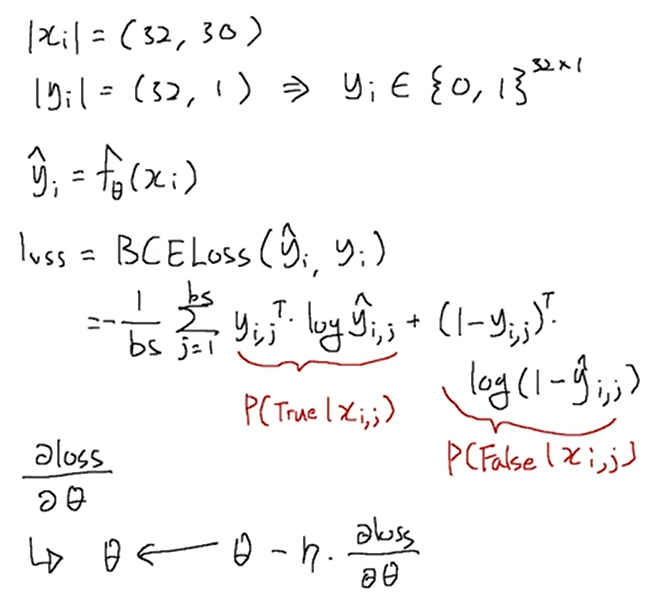 |xᵢ| = (32, 30)
|yᵢ| = (32, 1) ⇒ yᵢ ∈ {0, 1}^{32×1}
ŷᵢ = f̂_θ(xᵢ)
loss = BCELoss(ŷᵢ, yᵢ)
= -\frac{1}{bs} \sum_{j=1}^{bs} y_{i,j}^T · log ŷ_{i,j} + (1-y_{i,j})^T ·
log(1-ŷ_{i,j})
P(True | x_{i,j})
P(False | x_{i,j})
\frac{∂loss}{∂θ}
↳ θ ← θ - η · \frac{∂loss}{∂θ}